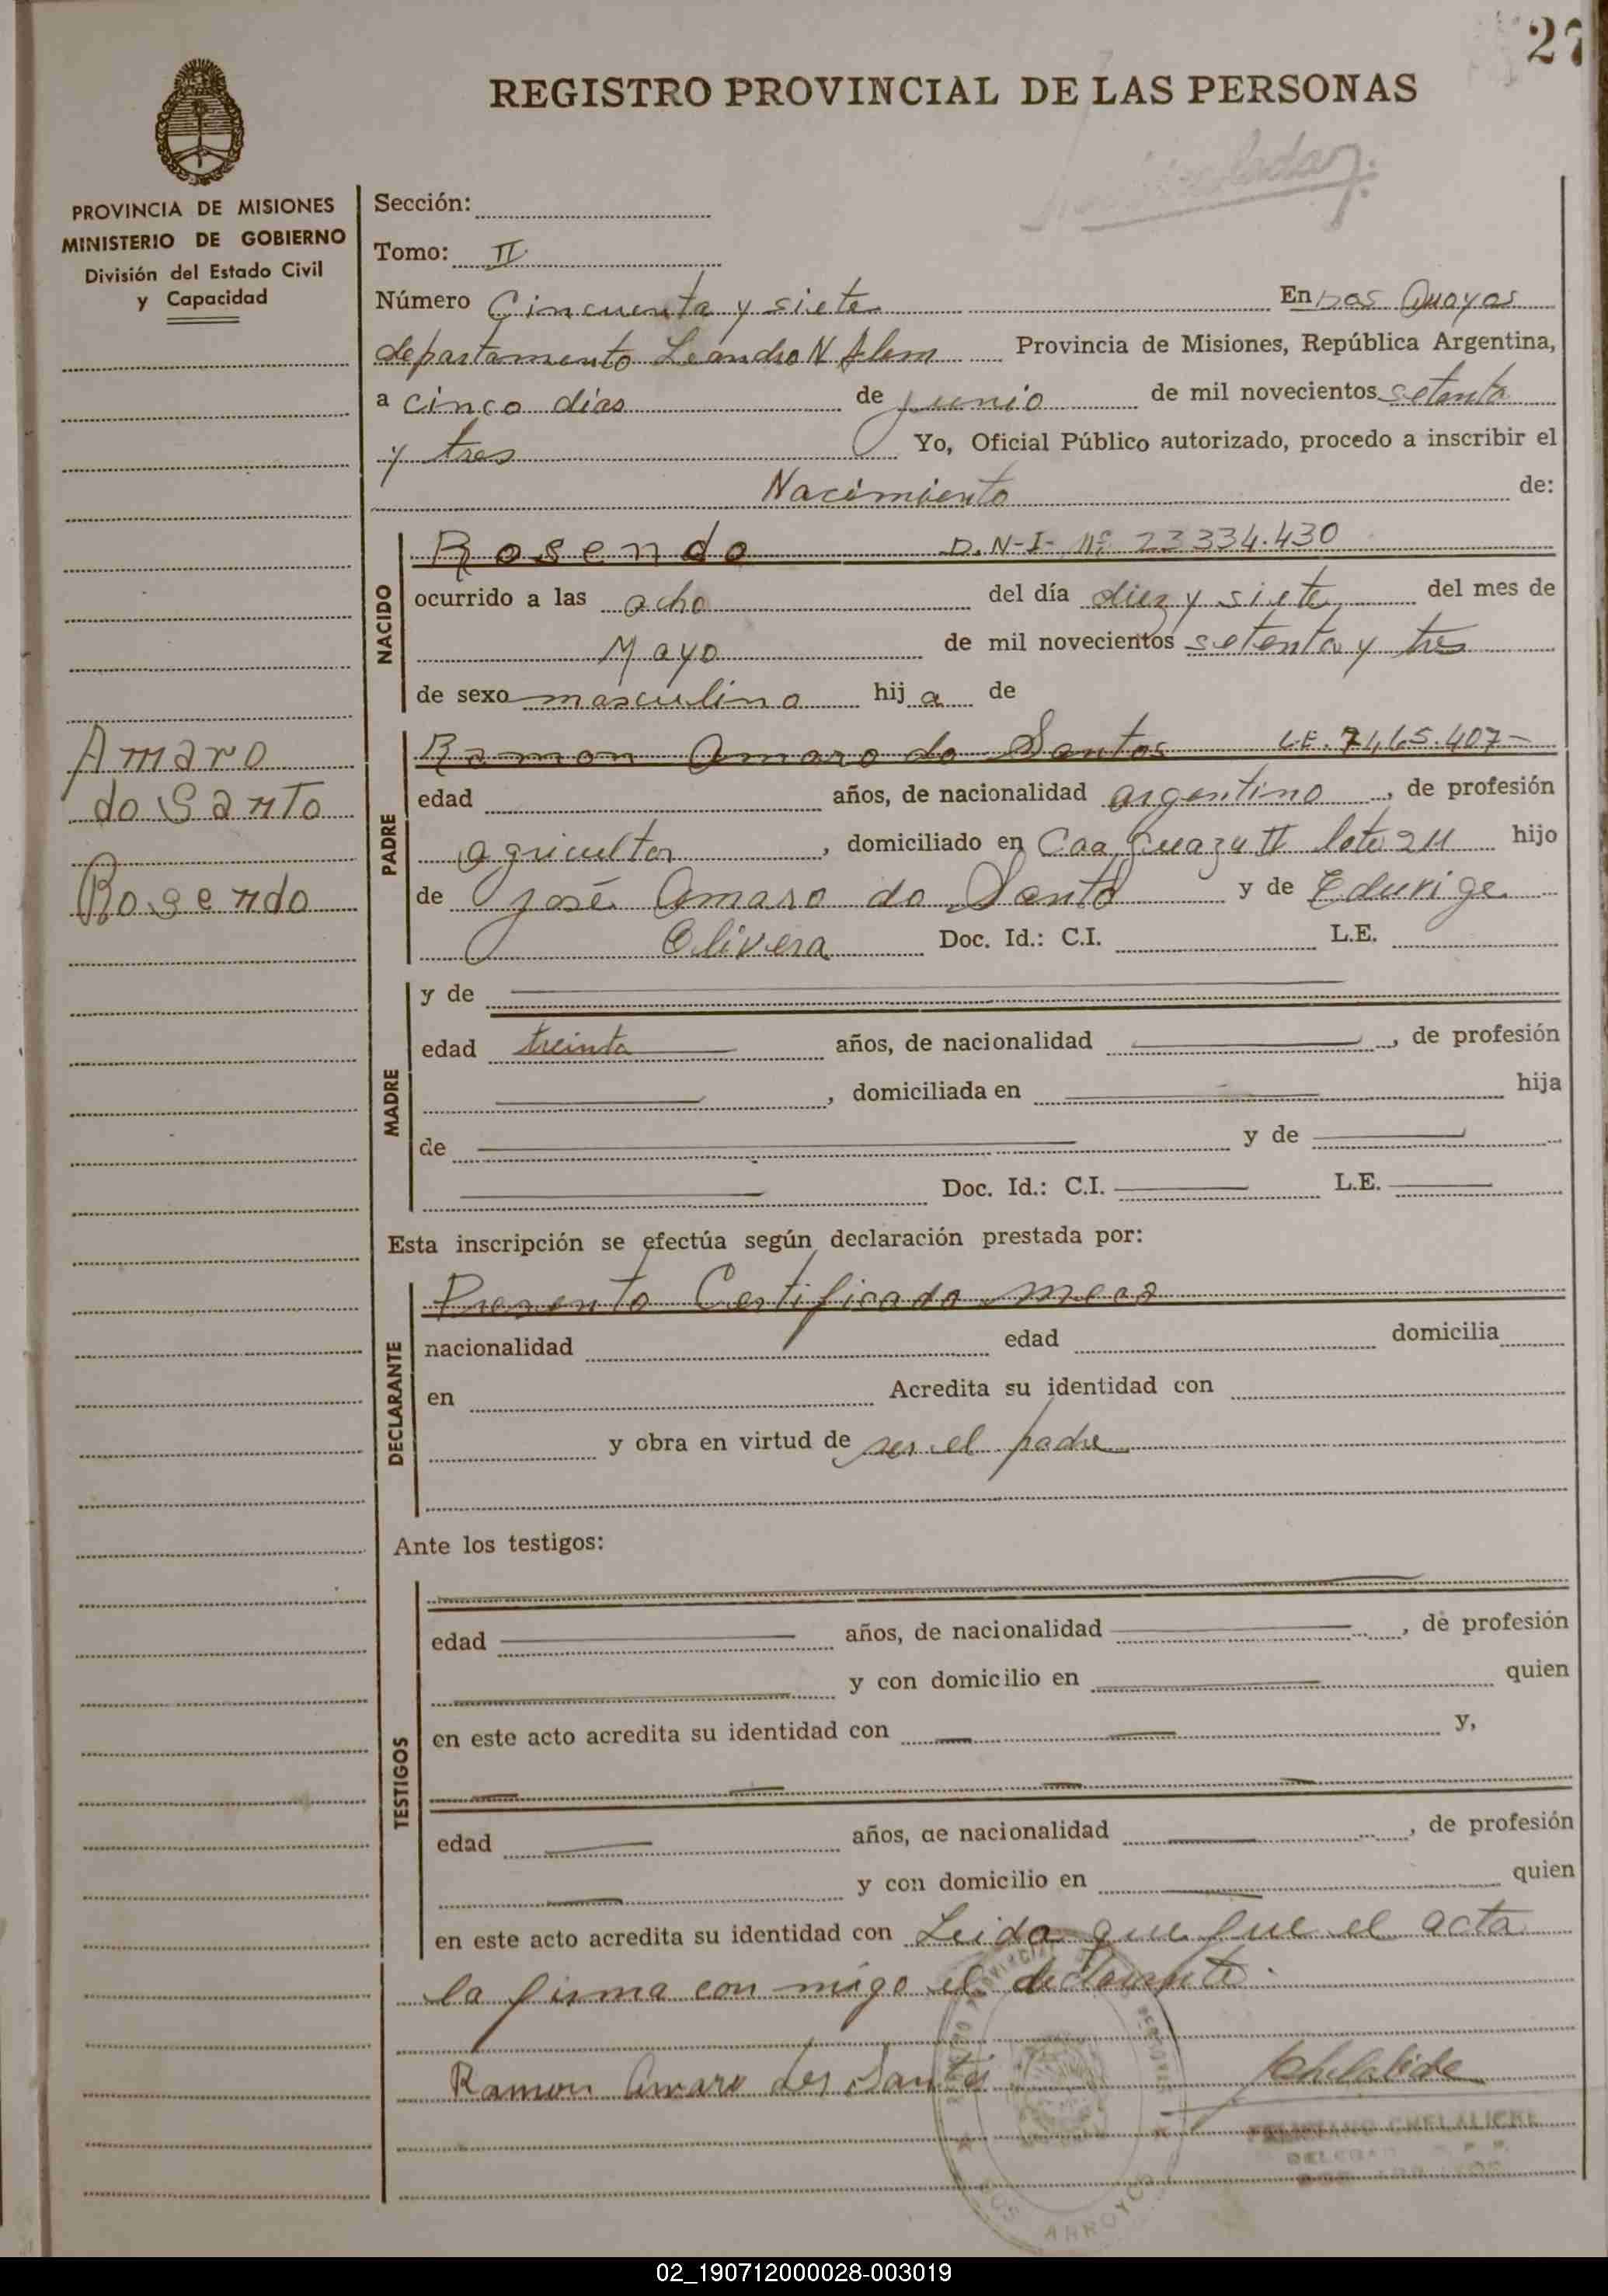 27
REGISTRO PROVINCIAL DE LAS PERSONAS
PROVINCIA DE MISIONES
MINISTERIO DE GOBIERNO
División del Estado Civil
y Capacidad
Sección:
Tomo: II
Número Cincuenta y siete En Dos
departamento Leandro N Alem Provincia de Misiones, República Argentina,
a cinco dias de junio de mil novecientos setenta
y tres Yo, Oficial Público autorizado, procedo a inscribir el
Nacimiento de:
NACIDO
Rosendo D.N-I- Nº 23334.430
ocurrido a las ocho del día diez y siete del mes de
Mayo de mil novecientos setenta y tres
de sexo masculino hij a de
Amaro
do Santo
Rosendo
PADRE
Ramon Amaro do Santos L.E.
edad años, de nacionalidad argentino, de profesión
agricultor, domiciliado en Caa Guazu II lote 211 hijo
de José Amaro do Santo y de Edurige
Olivera Doc. Id.: C.I. L.E.
MADRE
y de
edad treinta años, de nacionalidad , de profesión
, domiciliada en hija
de y de
Doc. Id.: C.I. L.E.
Esta inscripción se efectúa según declaración prestada por:
DECLARANTE
Presento Certificado
nacionalidad edad domicilia
en Acredita su identidad con
y obra en virtud de ser el padre
Ante los testigos:
TESTIGOS
edad años, de nacionalidad , de profesión
y con domicilio en quien
en este acto acredita su identidad con y,
edad años, de nacionalidad , de profesión
y con domicilio en quien
en este acto acredita su identidad con Leida que fue el acta
la firma con migo el declarante.
Ramon Amaro dos Santos
ARROYO
02_190712000028-003019